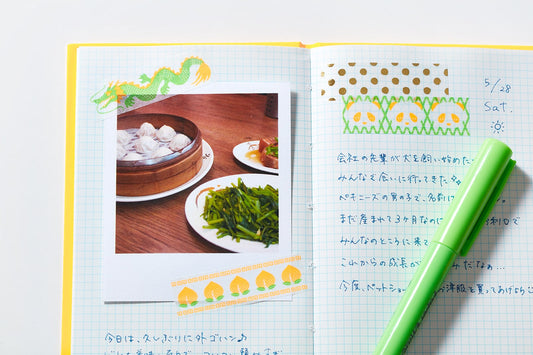 今日は、久しぶりに外ゴハン♪
5/28
Sat.
会社の先輩が犬を飼い始めた
みんなで会いに行ってきた
ペキニーズの男の子で、名前は
まだ産まれて3ヶ月なのに
みんなのところに来て
これからの成長が みだなぁ…
今度、ペットショ 洋服を買ってあげよう